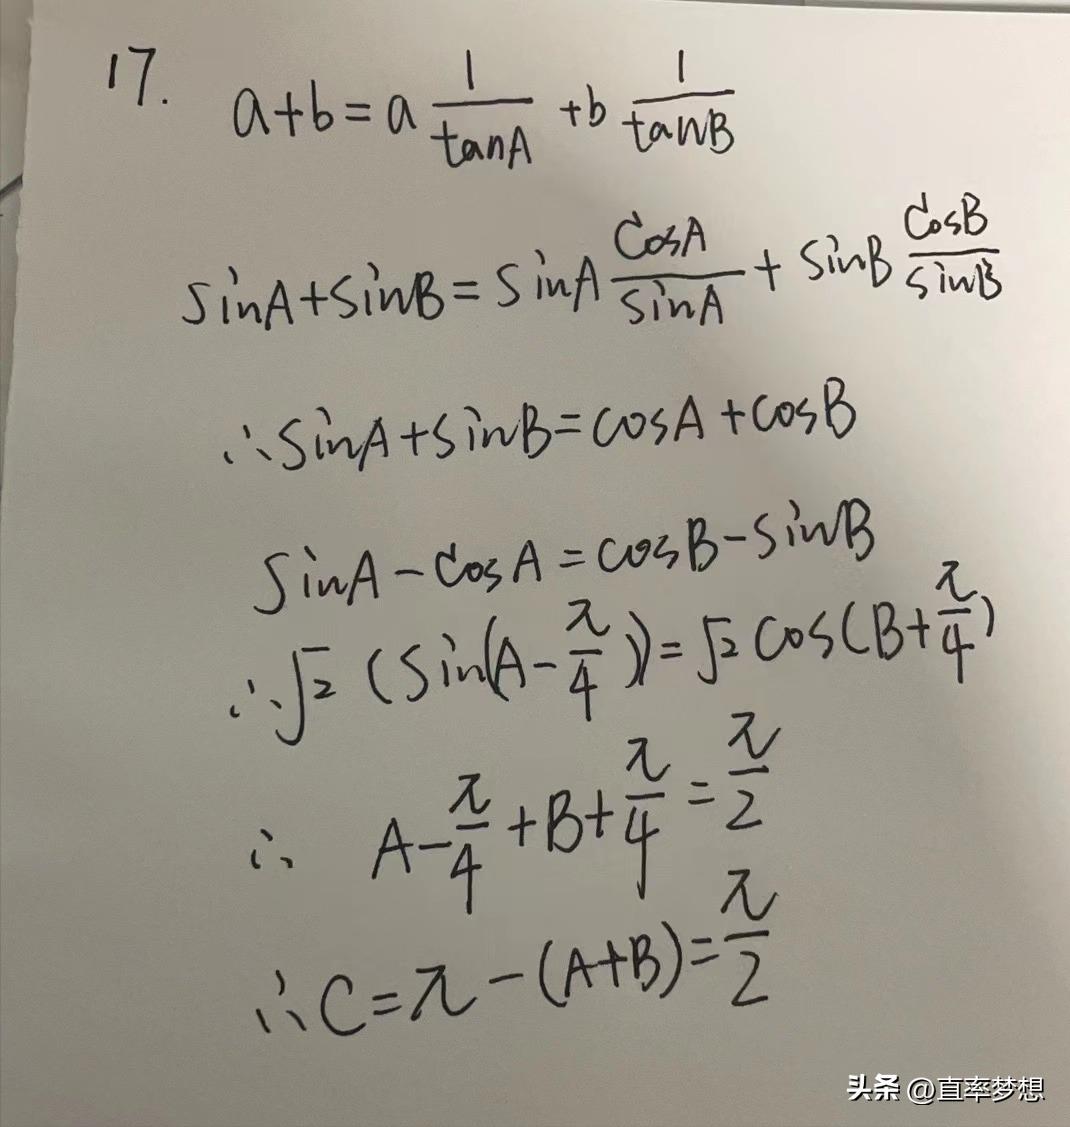 17. a+b=a 1/tanA +b 1/tanB
sinA+sinB=sinA cosA/sinA + sinB cosB/sinB
∴sinA+sinB=cosA+cosB
sinA-cosA=cosB-sinB
∴√2 (sin(A-π/4))=√2 cos(B+π/4)
∴ A-π/4+B+π/4=π/2
∴C=π-(A+B)=π/2
头条 @直率梦想